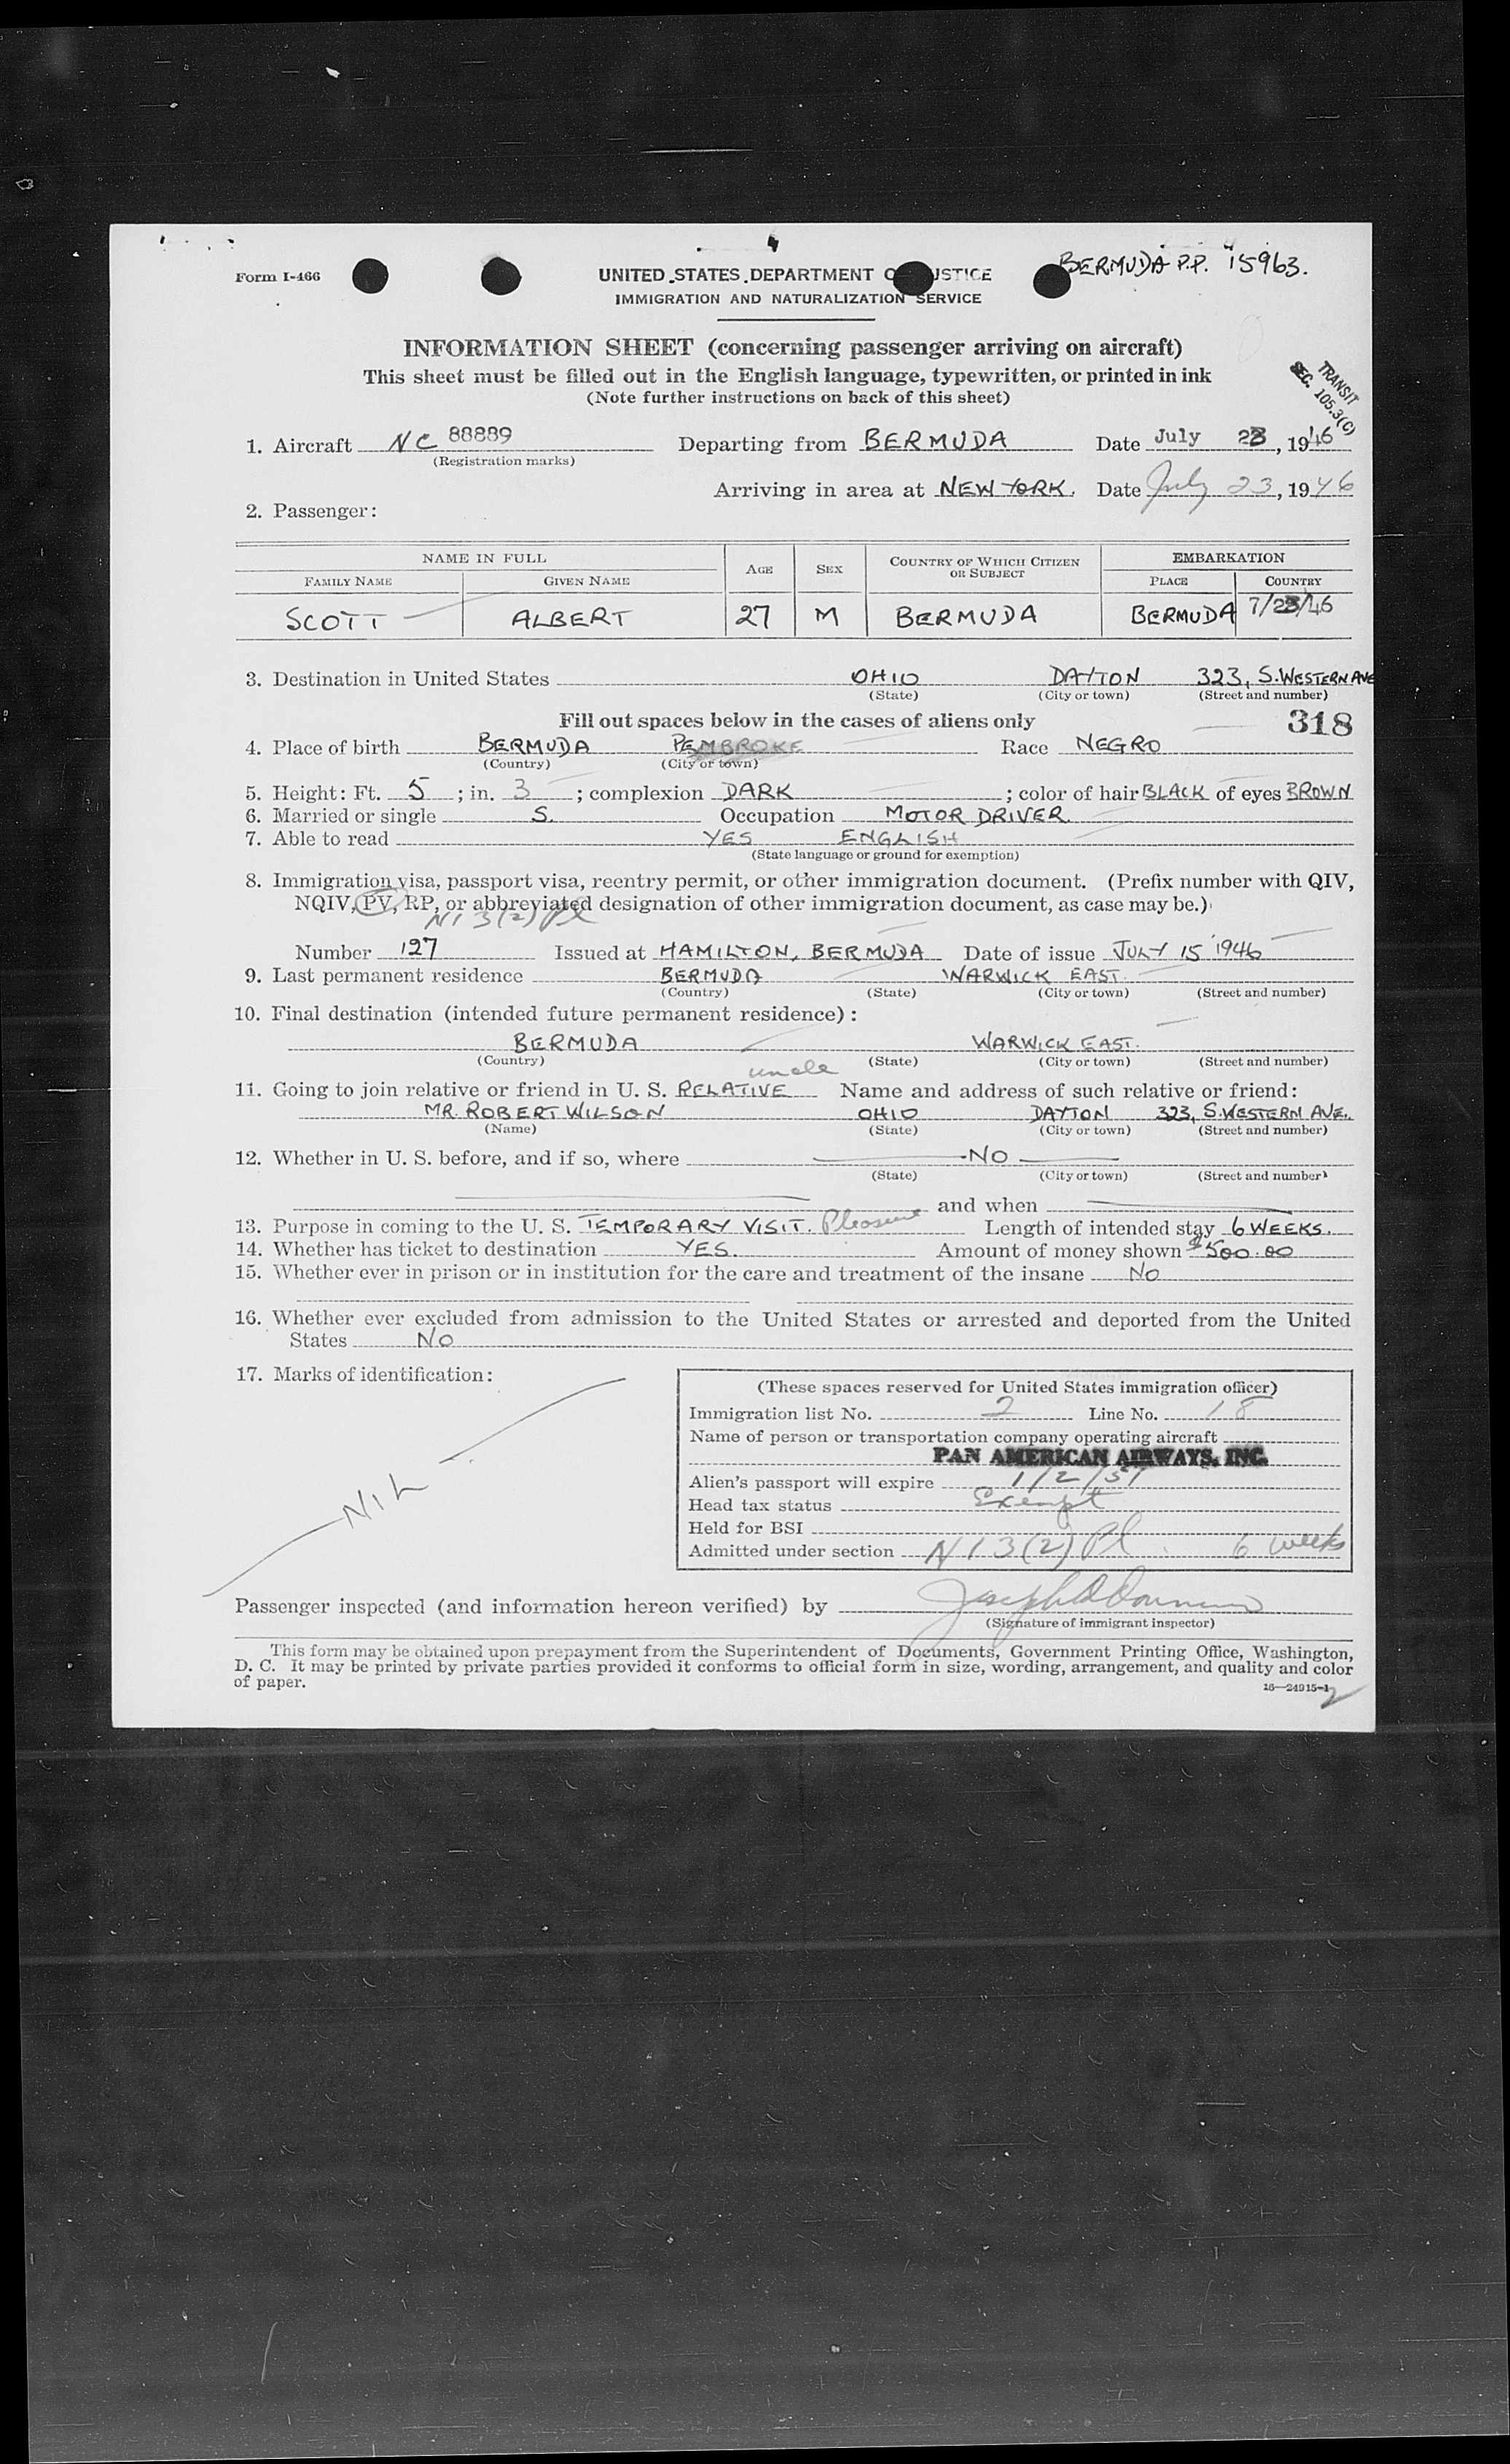 Form I-466
BERMUDA P.P. 15963.
UNITED STATES DEPARTMENT O USTICE
IMMIGRATION AND NATURALIZATION SERVICE
INFORMATION SHEET (concerning passenger arriving on aircraft)
This sheet must be filled out in the English language, typewritten, or printed in ink
(Note further instructions on back of this sheet)
TRANSIT
SEC. 105.3(C)
1. Aircraft NC 88889 Departing from BERMUDA Date July 23, 1946
(Registration marks)
Arriving in area at NEW YORK. Date July 23, 1946
2. Passenger:
NAME IN FULL AGE SEX COUNTRY OF WHICH CITIZEN OR SUBJECT EMBARKATION
FAMILY NAME GIVEN NAME PLACE COUNTRY
SCOTT ALBERT 27 M BERMUDA BERMUDA 7/23/46
3. Destination in United States OHIO DAYTON 323, S. WESTERN AVE
(State) (City or town) (Street and number)
Fill out spaces below in the cases of aliens only 318
4. Place of birth BERMUDA PEMBROKE Race NEGRO
(Country) (City or town)
5. Height: Ft. 5 ; in. 3 ; complexion DARK ; color of hair BLACK of eyes BROWN
6. Married or single S. Occupation MOTOR DRIVER
7. Able to read YES ENGLISH
(State language or ground for exemption)
8. Immigration visa, passport visa, reentry permit, or other immigration document. (Prefix number with QIV,
NQIV, PV, RP, or abbreviated designation of other immigration document, as case may be.)
NI 3(2) Pl
Number 127 Issued at HAMILTON, BERMUDA Date of issue JULY 15 1946
9. Last permanent residence BERMUDA WARWICK EAST.
(Country) (State) (City or town) (Street and number)
10. Final destination (intended future permanent residence):
BERMUDA WARWICK EAST.
(Country) (State) (City or town) (Street and number)
uncle
11. Going to join relative or friend in U. S. RELATIVE Name and address of such relative or friend:
MR. ROBERT WILSON OHIO DAYTON 323, S. WESTERN AVE.
(Name) (State) (City or town) (Street and number)
12. Whether in U. S. before, and if so, where NO
(State) (City or town) (Street and number)
and when
13. Purpose in coming to the U. S. TEMPORARY VISIT. Pleasure Length of intended stay 6 WEEKS.
14. Whether has ticket to destination YES. Amount of money shown $500.00
15. Whether ever in prison or in institution for the care and treatment of the insane No
16. Whether ever excluded from admission to the United States or arrested and deported from the United
States No
17. Marks of identification:
NIL
(These spaces reserved for United States immigration officer)
Immigration list No. 2 Line No. 18
Name of person or transportation company operating aircraft
PAN AMERICAN AIRWAYS, INC.
Alien's passport will expire 1/2/51
Head tax status Exempt
Held for BSI
Admitted under section NI 3(2) Pl. 6 weeks
Passenger inspected (and information hereon verified) by
(Signature of immigrant inspector)
This form may be obtained upon prepayment from the Superintendent of Documents, Government Printing Office, Washington,
D. C. It may be printed by private parties provided it conforms to official form in size, wording, arrangement, and quality and color
of paper.
16—24915-1
2